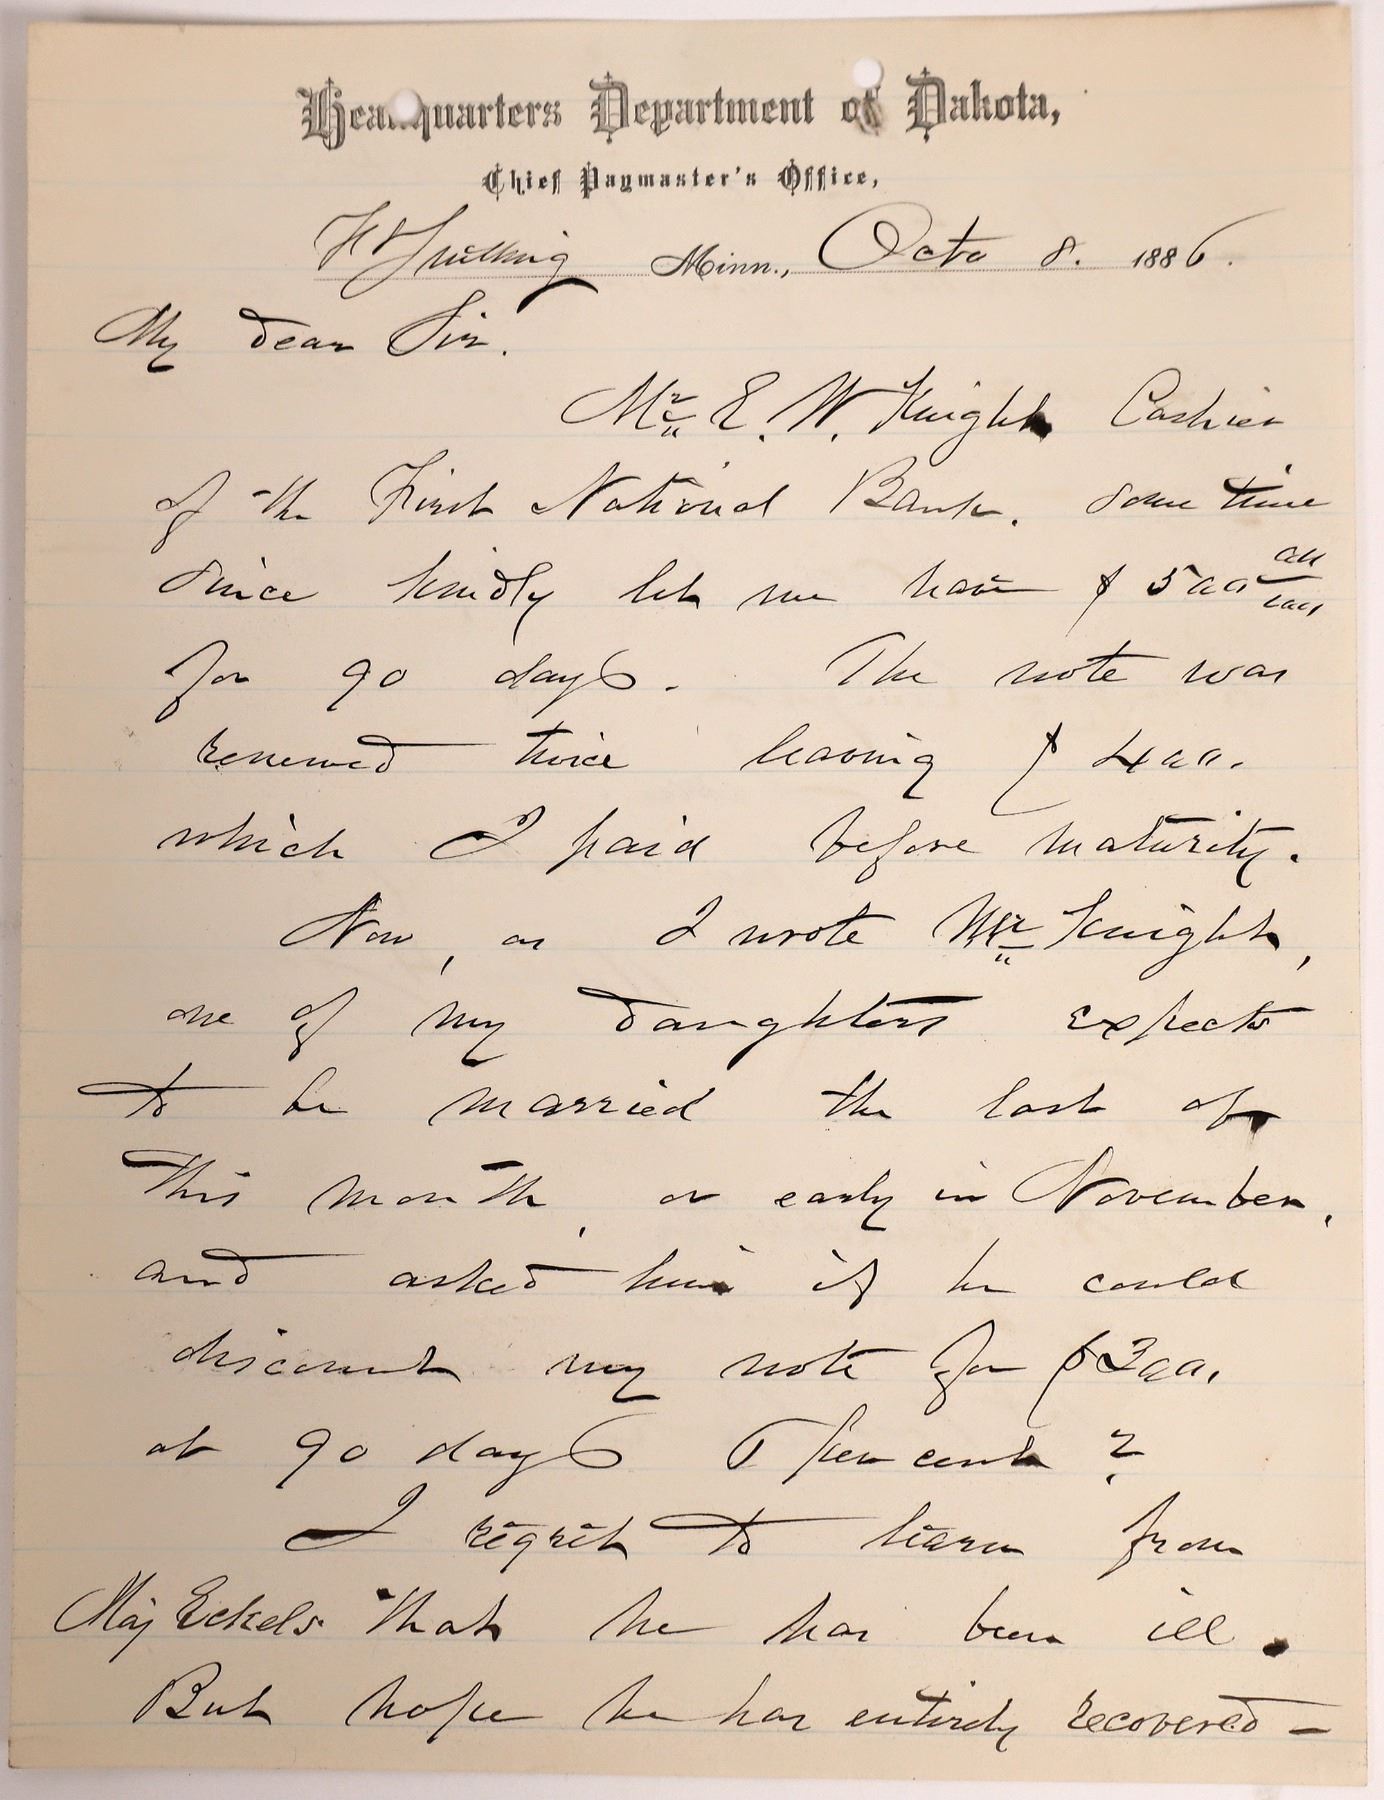 Headquarters Department of Dakota,
Chief Paymaster's Office,
Ft Snelling Minn., Octo 8. 1886.
My dear Sir.
Mr. E. W. Knight Cashier
of the First National Bank. some time
since kindly let me have $500 00/100
for 90 days. The note was
renewed twice leaving $400.
which I paid before maturity.
Now, as I wrote Mr Knight,
one of my daughters expects
to be married the last of
this month, or early in November,
and asked him if he could
discount my note for $300.
at 90 days per cent?
I regret to learn from
Maj Eckels that he has been ill.
But hope he has entirely recovered -